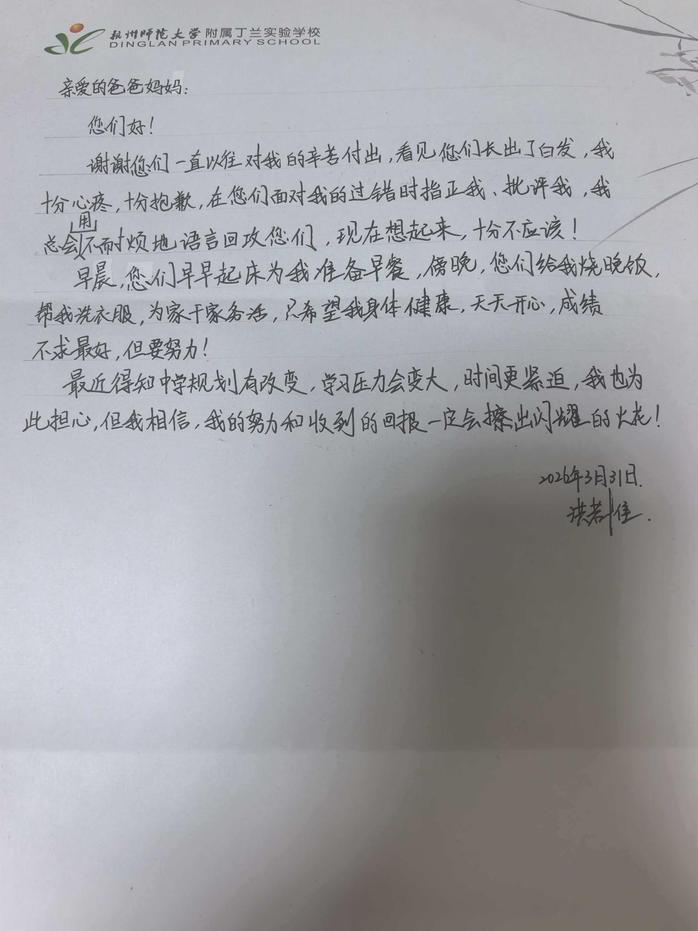 杭州师范大学 附属丁兰实验学校
DINGLAN PRIMARY SCHOOL
亲爱的爸爸妈妈:
您们好!
谢谢您们一直以往对我的辛苦付出,看见您们长出了白发,我
十分心疼,十分抱歉,在您们面对我的过错时指正我、批评我,我
总会用不耐烦地语言回攻您们,现在想起来,十分不应该!
早晨,您们早早起床为我准备早餐,傍晚,您们给我烧晚饭,
帮我洗衣服,为家干家务活,只希望我身体健康,天天开心,成绩
不求最好,但要努力!
最近得知中学规划有改变,学习压力会变大,时间更紧迫,我也为
此担心,但我相信,我的努力和收到的回报一定会擦出闪耀的火花!
2026年3月31日.
洪若佳.